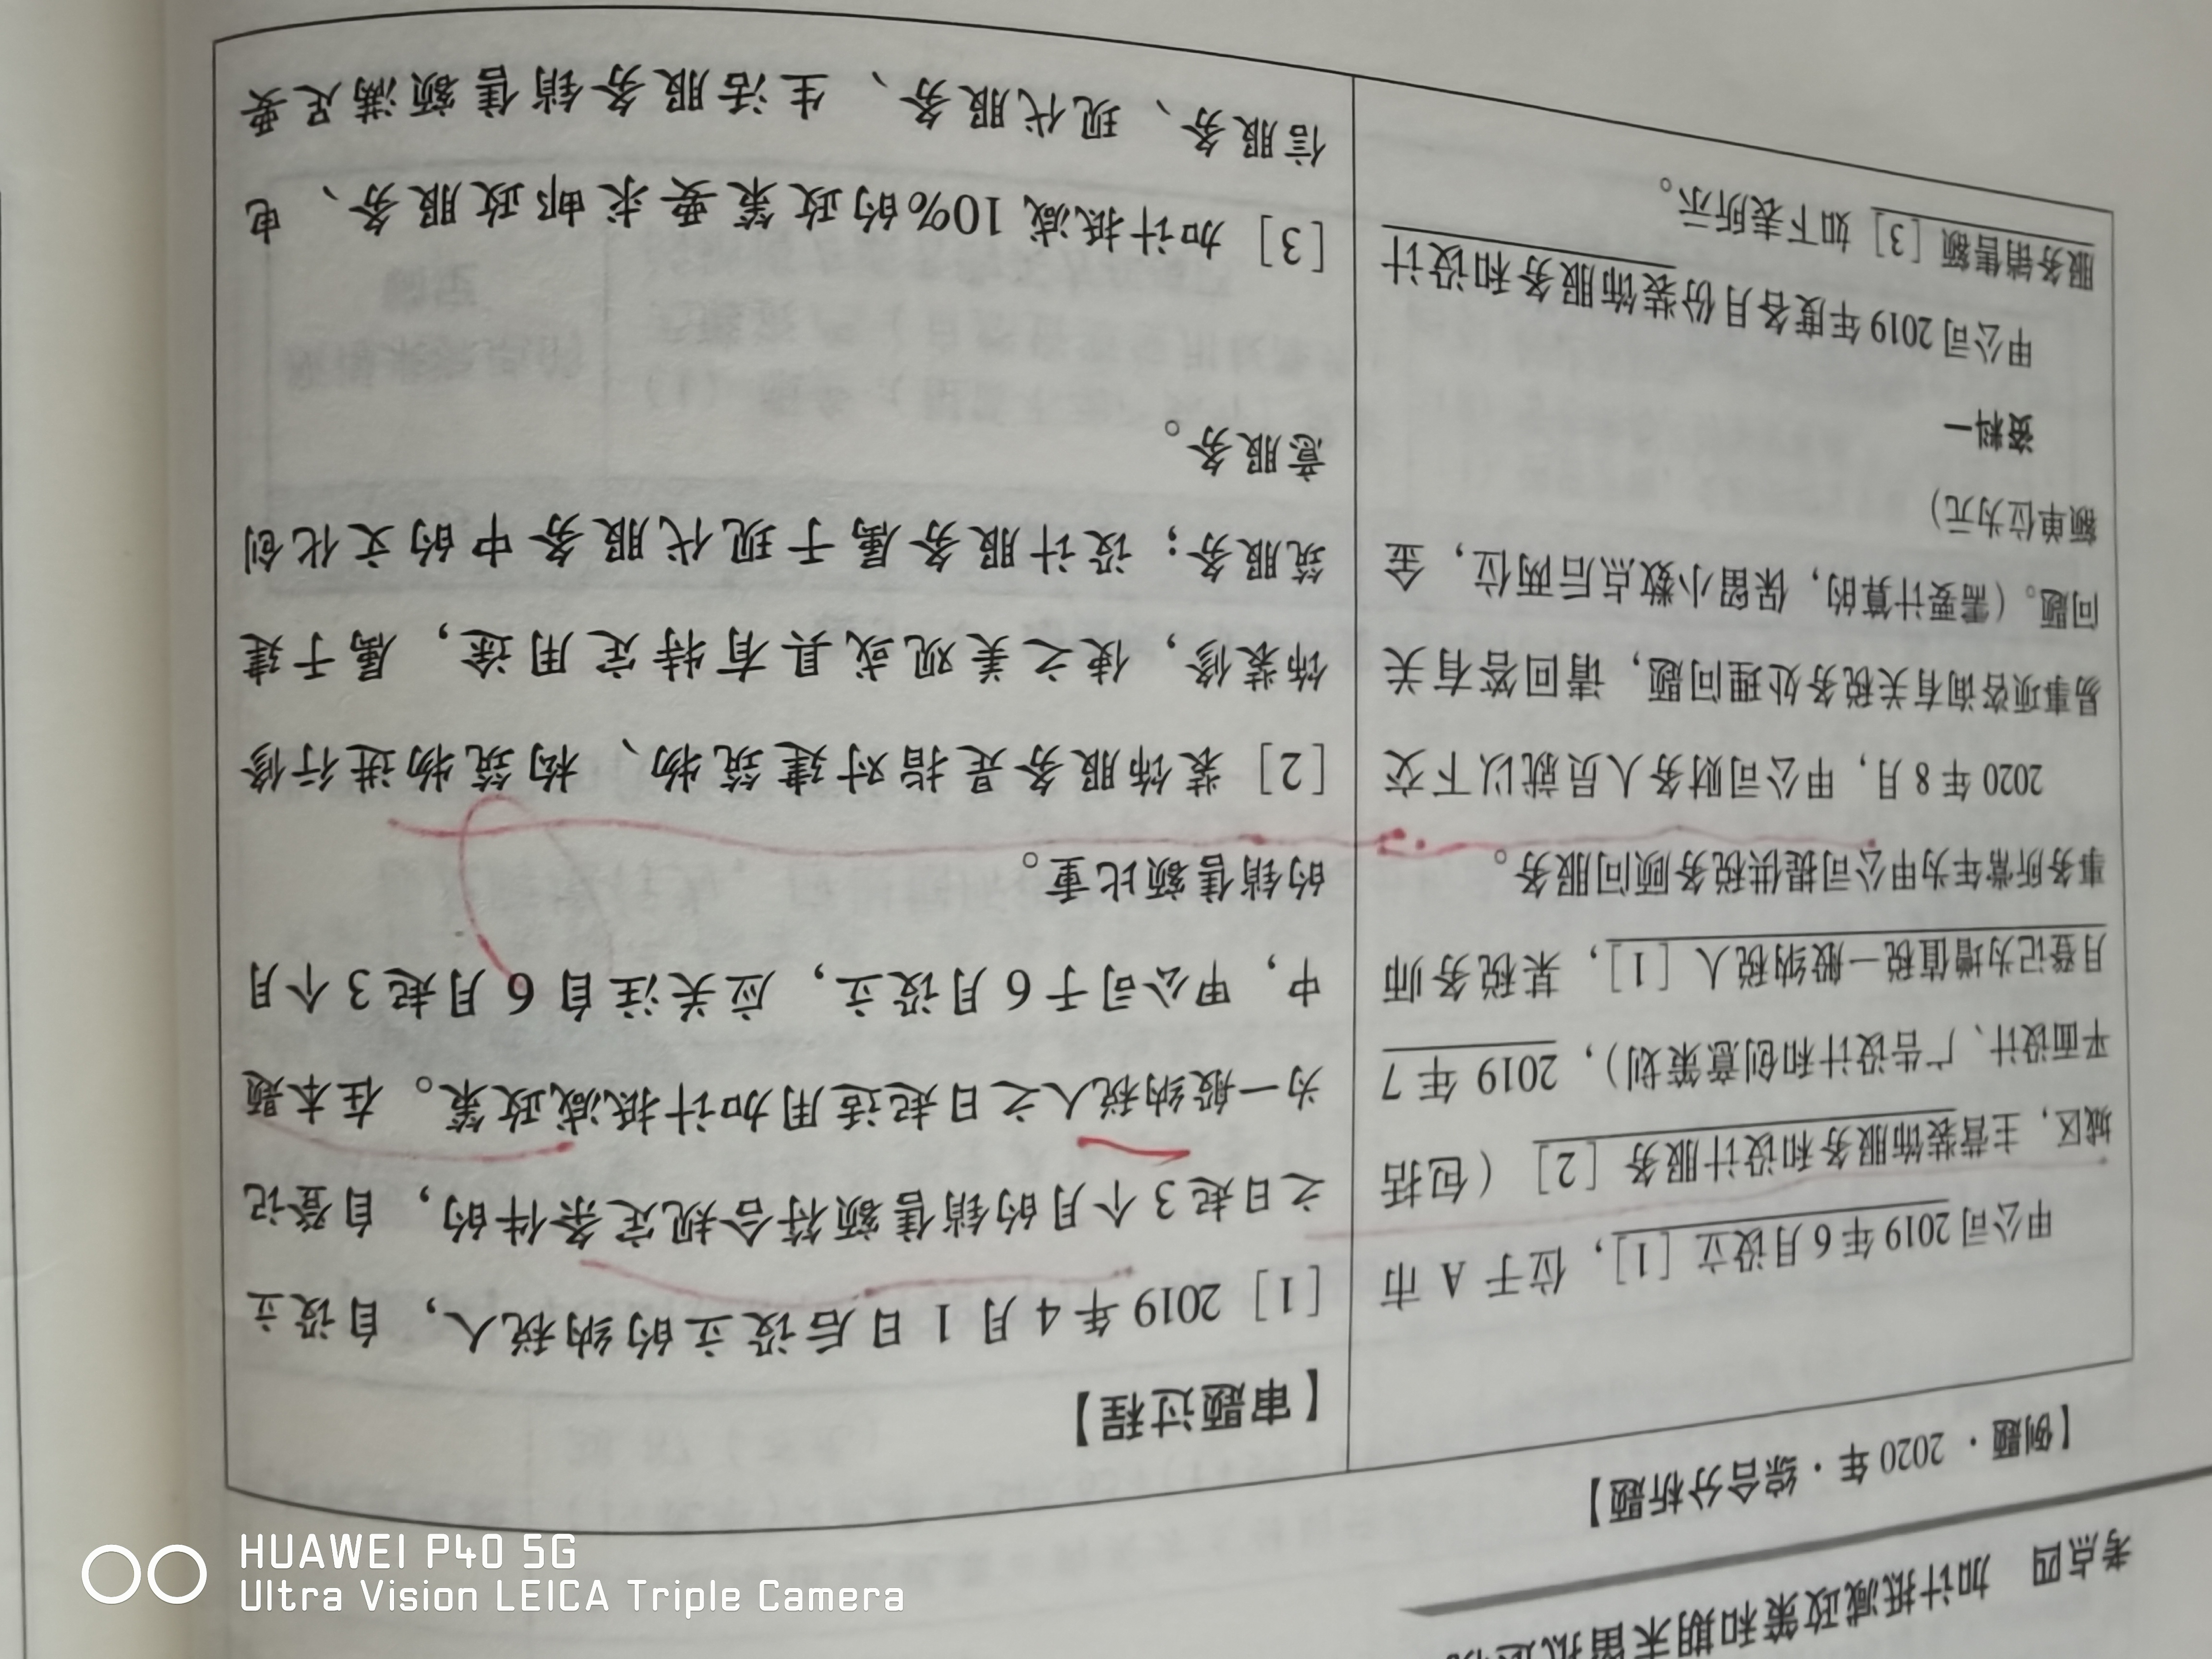 考点四 加计抵减政策和期末留抵退税
【例题·2020年·综合分析题】
甲公司2019年6月设立[1]，位于A市
城区，主营装饰服务和设计服务[2]（包括
平面设计、广告设计和创意策划），2019年7
月登记为增值税一般纳税人[1]，某税务师
事务所常年为甲公司提供税务顾问服务。
2020年8月，甲公司财务人员就以下交
易事项咨询有关税务处理问题，请回答有关
问题。（需要计算的，保留小数点后两位，金
额单位为元）
资料一
甲公司2019年度各月份装饰服务和设计
服务销售额[3]如下表所示。
【审题过程】
[1] 2019年4月1日后设立的纳税人，自设立
之日起3个月的销售额符合规定条件的，自登记
为一般纳税人之日起适用加计抵减政策。在本题
中，甲公司于6月设立，应关注自6月起3个月
的销售额比重。
[2] 装饰服务是指对建筑物、构筑物进行修
饰装修，使之美观或具有特定用途，属于建
筑服务；设计服务属于现代服务中的文化创
意服务。
[3] 加计抵减10%的政策要求邮政服务、电
信服务、现代服务、生活服务销售额满足要
HUAWEI P40 5G
Ultra Vision LEICA Triple Camera